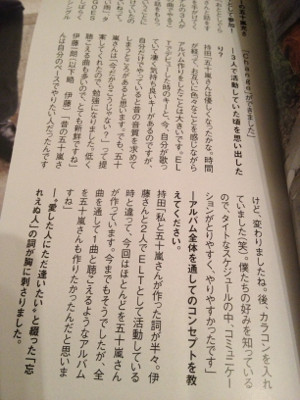 けど、変わりましたね。後、カラコンを入れ
ていました(笑)。僕たちの好みを知っている
ので、タイトなスケジュールの中、コミュニケー
ションがとりやすく、やりやすかったです」
―アルバム全体を通してのコンセプトを教
えてください。
持田「私と五十嵐さんが作った詞が半々。伊
藤さんと2人でELTとして活動している
時と違って、今回はほとんどを五十嵐さん
が作っています。今までもそうでしたが、全
曲を通して1曲と聴こえるようなアルバム
を五十嵐さんも作りたかったんだと思いま
すね」
―愛した人にただ逢いたい。と綴った「忘
れえぬ人」の詞が胸に刺さりました。
―3人で活動していた頃を思い出した
り?
持田「五十嵐さんは優しくなったかな。時間
が経って、お互いに色々なことを感じながら
アルバム作りましたことは大きいです。EL
Tでデビューした時のキーと、今、自分が歌っ
ていて凄く気持ち良いキーがあるのですが、
自分だけでやっていると昔の音質を求めて
しまうところがあると思います。でも、五十
嵐さんは「今だからこうじゃない?」って提
案してくれたので、勉強になりました。低く
聴こえる曲も多いので、とても新鮮ですね」
伊藤一朗(以下略 伊藤)「昔の五十嵐さ
んは自分のペースでやりたい人だったんです